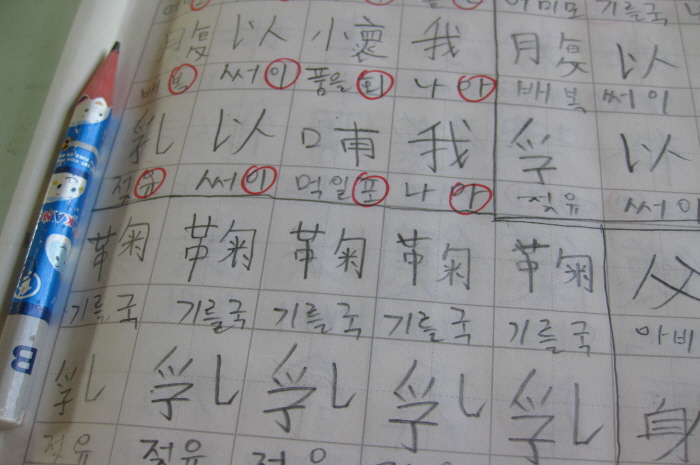 어미모 기를국
腹 以 懷 我 腹 以
배복 써이 품을회 나아 배복 써이
乳 以 哺 我 孚 以
젖유 써이 먹일포 나아 젖유 써이
鞠 鞠 鞠 鞠 鞠 父
기를국 기를국 기를국 기를국 기를국 아비
乳 乳 乳 乳 乳 身
젖유 젖유 젖유
B